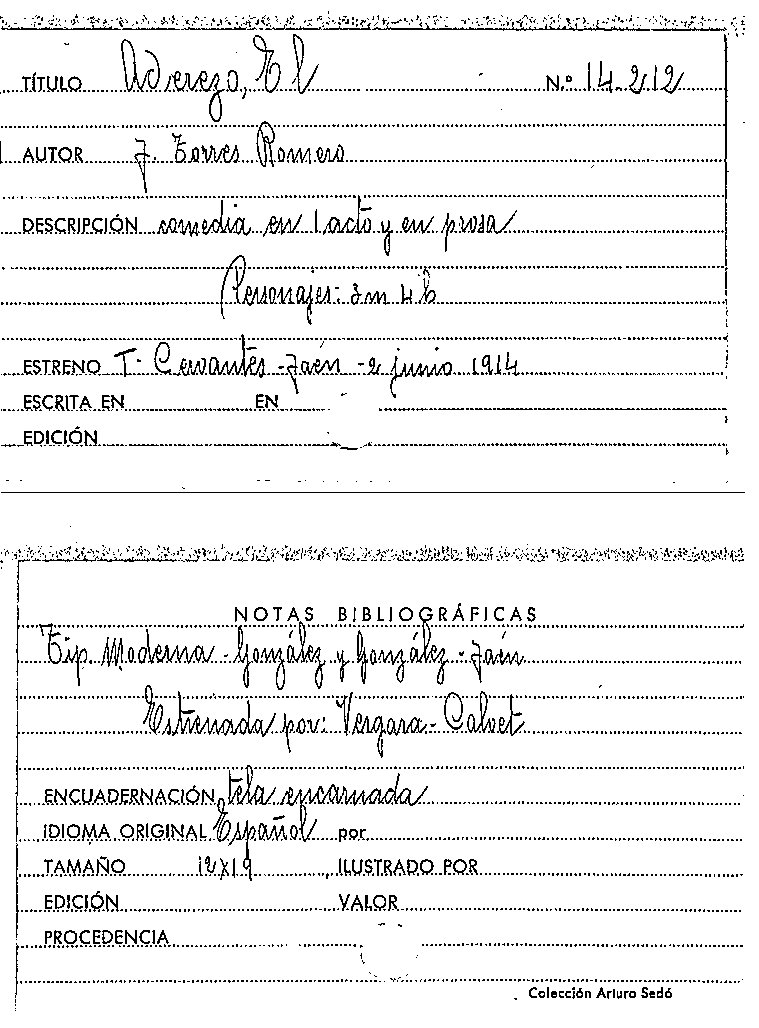 TÍTULO Aderezo, El N.º 14.212
AUTOR J. Torres Romero
DESCRIPCIÓN comedia en 1 acto y en prosa
Personajes: 3m 4h
ESTRENO T. Cervantes - Jaén - 2 junio 1914
ESCRITA EN EN
EDICIÓN
NOTAS BIBLIOGRÁFICAS
Tip. Moderna - González y González - Jaén
Estrenada por: Vergara - Calvet
ENCUADERNACIÓN tela encarnada
IDIOMA ORIGINAL Español por
TAMAÑO 12x19 ILUSTRADO POR
EDICIÓN VALOR
PROCEDENCIA
Colección Arturo Sedó